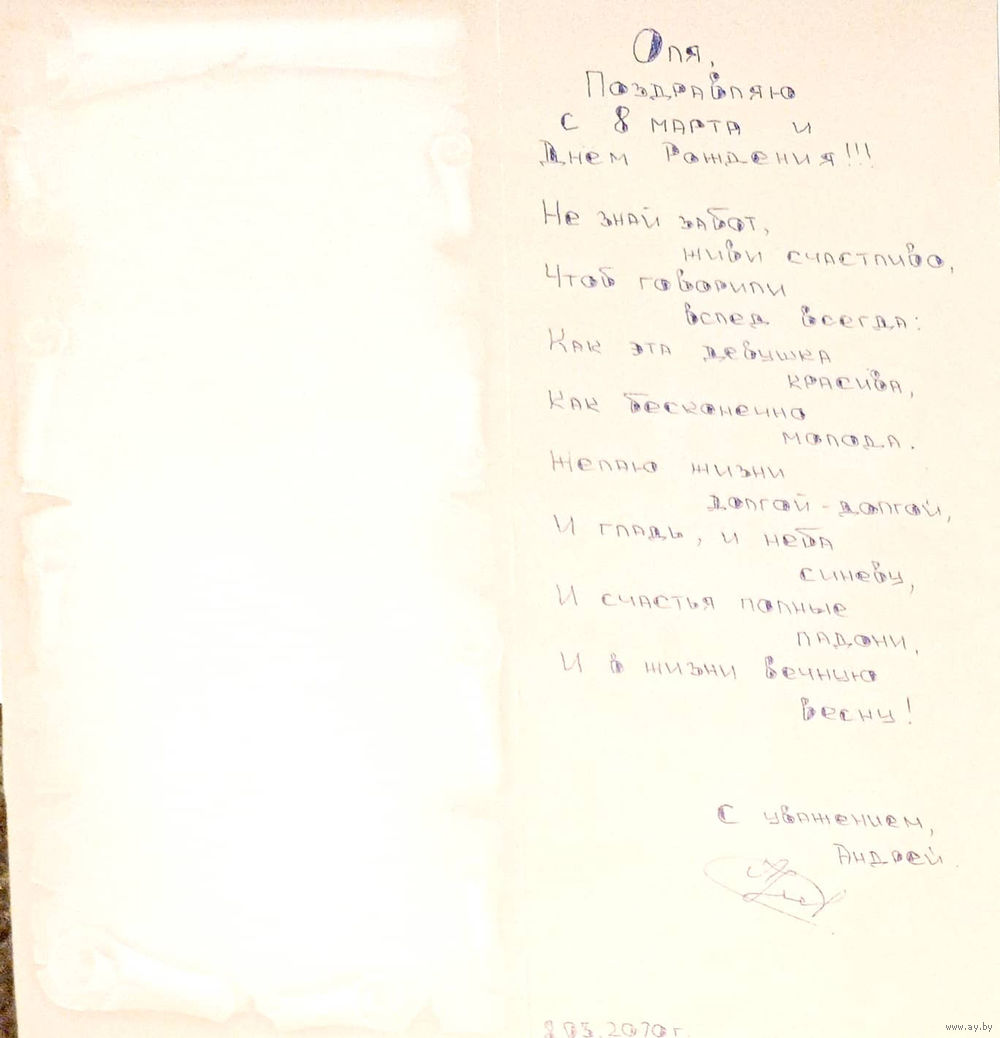 Оля,
Поздравляю
с 8 марта и
Днем Рождения!!!
Не знай забот,
живи счастливо,
Чтоб говорили
вслед всегда:
Как эта девушка
красива,
Как бесконечно
молода.
Желаю жизни
долгой-долгой,
И гладь, и неба
синеву,
И счастья полные
ладони,
И в жизни вечную
весну!
С уважением,
Андрей.
8.03.2010г.
www.ay.by